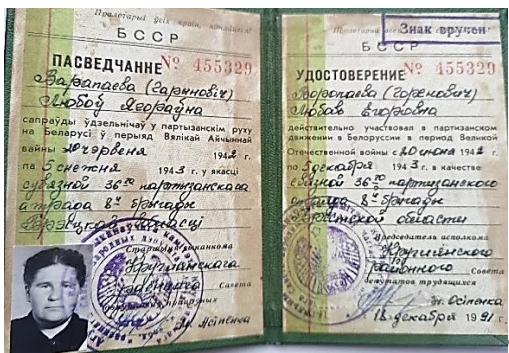 Пралетарыі ўсіх краін, яднайцеся!
БССР
ПАСВЕДЧАННЕ № 455329
Варапаева (Гариновіч)
Любоў Ягораўна
сапраўды ўдзельнічаў у партызанскім руху
на Беларусі ў перыяд Вялікай Айчыннай
вайны 20 чэрвеня 1942 г.
па 5 снежня 1943 г. у якасці
сувязной 36го партизанскага
атрада 8й брыгады
вобласці
Старшыня выканкома
Круглянскага
раённага Савета
дэпутатаў працоўных
Знак вручен
Пролетарии всех стран, соединяйтесь!
БССР
УДОСТОВЕРЕНИЕ № 455329
Воропаева (Горенович)
Любовь Егоровна
действительно участвовал в партизанском
движении в Белоруссии в период Великой
Отечественной войны с 20 июня 1942 г.
по 5 декабря 1943 г. в качестве
связной 36го партизанского
отряда 8й бригады
области
Председатель исполкома
Круглянского
районного Совета
депутатов трудящихся
18 декабря 1991 г.